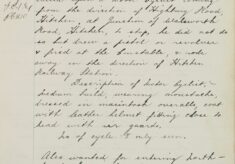 from the direction of Highbury Road
Hitchin, at junction of Walsworth
Road, Hitchin, to stop, he did not do
so but drew a pistol or revolver
& fired at the Constable, & rode
away in the direction of Hitchin
Railway Station.
Description of Motor Cyclist:-
Medium build, wearing moustache,
dressed in mackintosh overalls, coat
with leather helmet fitting close to
head with ear guards.
No of cycle
Also wanted for entering north-